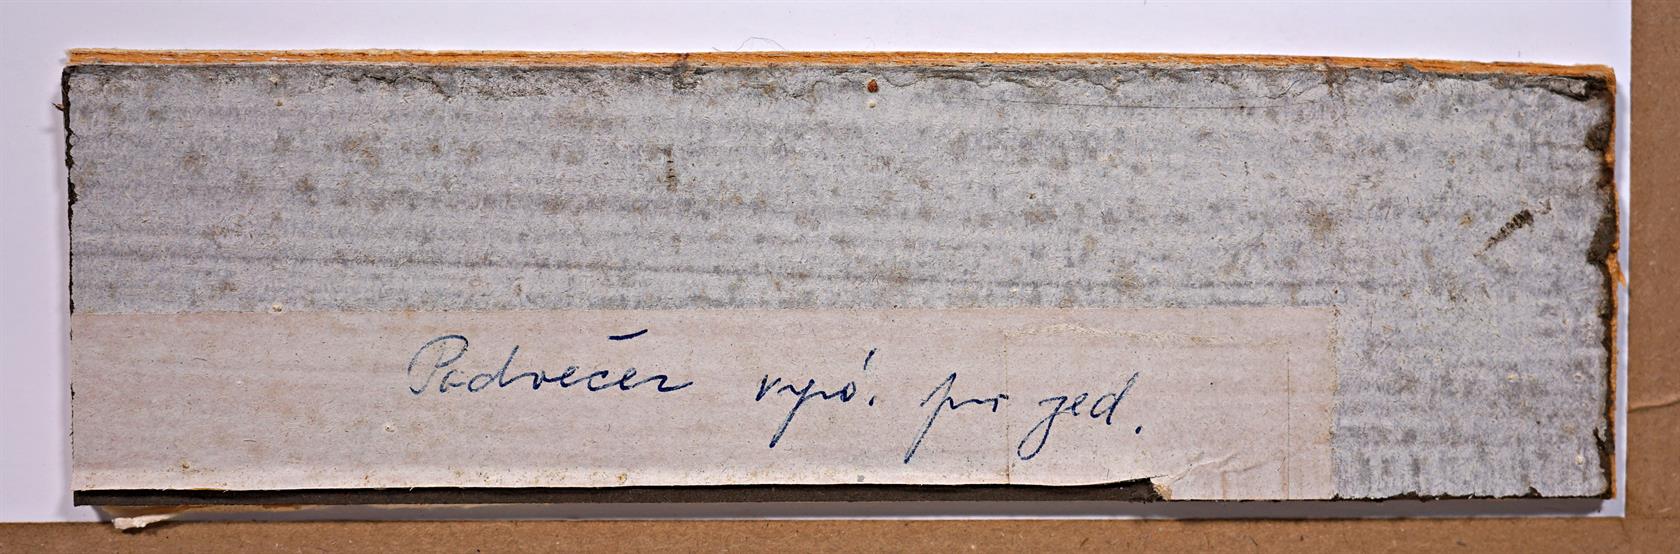 Podvečer vypů. pro jed.